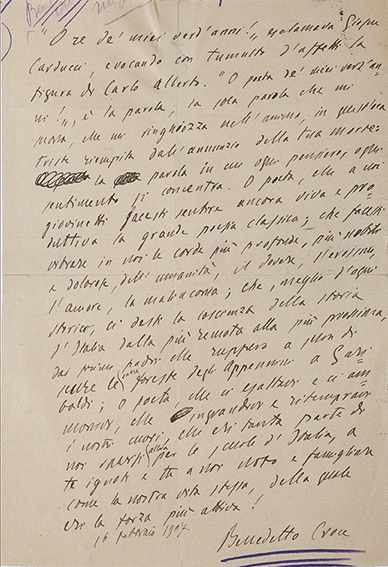 "O re de' miei verd'anni!", esclamava Giosue
Carducci, evocando con tumulto d'affetti la
figura di Carlo Alberto. "O poeta de' miei verd'an-
ni!", è la parola, la sola parola che mi
che mi singhiozza nell'animo, in quest'ora
triste riempita dall'annunzio della tua morte:
la parola in cui ogni pensiero, ogni
sentimento si concentra. O poeta, che a noi
giovinetti facesti sentire ancora viva e pro-
duttiva la grande poesia classica; che facesti
vibrare in noi le corde più profonde, più nobili
e dolorose dell'umanità, il dovere, l'eroismo,
l'amore, la malinconia; che, meglio d'ogni
storico, ci desti la coscienza della storia
d'Italia dalla più remota alla più prossima,
dai primi padri che ruppero a suon di
scure le sacre foreste degli Appennini a Gari-
baldi; o poeta, che ci esaltavi e ci am-
monivi, che ingrandivi e ritempravi
i nostri cuori, che eri tanta parte di
noi sparsi allora per le scuole d'Italia, a
te ignoti e tu a noi noto e famigliare
come la nostra vita stessa, della quale
eri la forza più attiva!
16 febbraio 1907.
Benedetto Croce